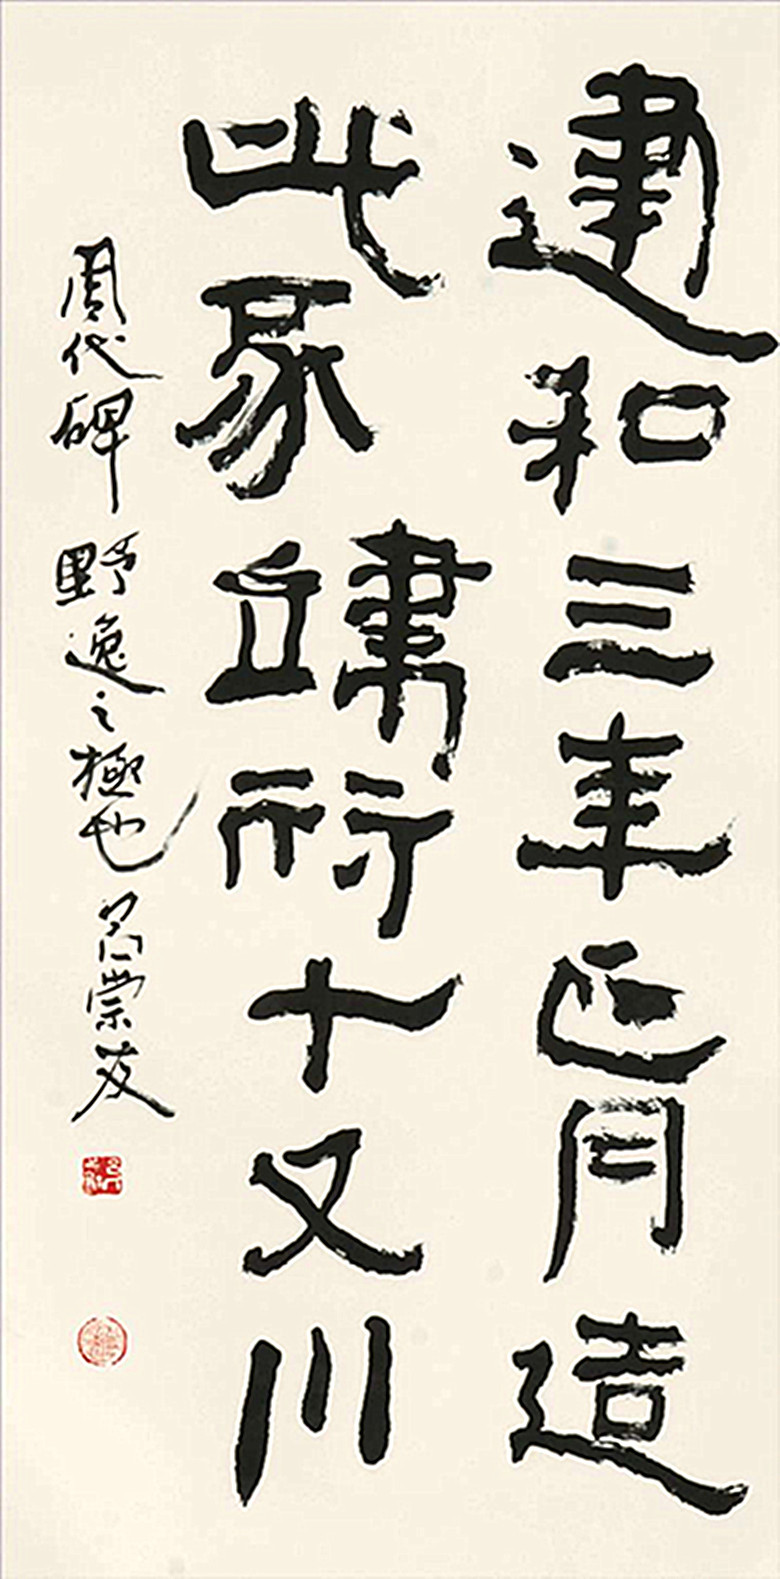 建和三年正月造
此豕十又川
周代碑野逸之極也崇友